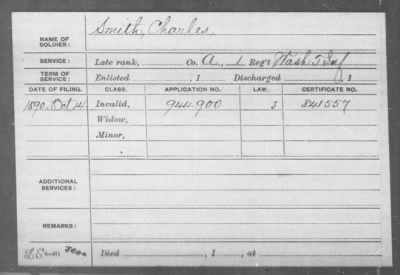 NAME OF SOLDIER: Smith, Charles.
SERVICE: Late rank, Co. A, 1 Reg't Wash T Inf
TERM OF SERVICE: Enlisted , 1 Discharged , 1
DATE OF FILING. CLASS. APPLICATION NO. LAW. CERTIFICATE NO.
1890. Oct 14 Invalid, 944.900 J 841557
Widow,
Minor,
ADDITIONAL SERVICES:
REMARKS:
Died , 1 , at